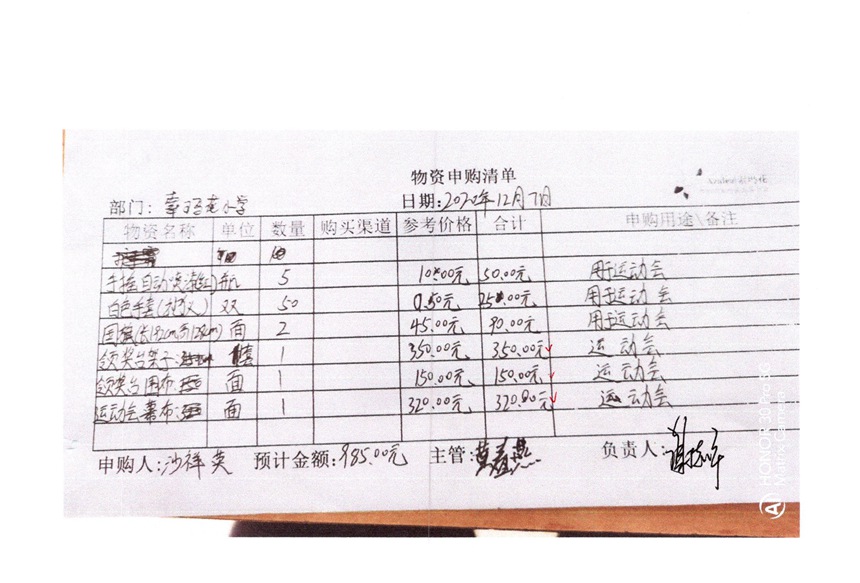 物资申购清单
部门: 小学 日期:2020年12月7日
物资名称 单位 数量 购买渠道 参考价格 合计 申购用途\备注
手摇自动 5 10.00元 50.00元 用于运动会
白色手套 双 50 0.50元 25.00元 用于运动会
国旗(长192cm宽128cm) 面 2 45.00元 90.00元 用于运动会
领奖台架子 套 1 350.00元 350.00元 运动会
领奖台围布 面 1 150.00元 150.00元 运动会
运动会幕布 面 1 320.00元 320.00元 运动会
申购人:沙祥英 预计金额:985.00元 主管:黄春燕 负责人:
HONOR 30 Pro 5G
Matrix Camera